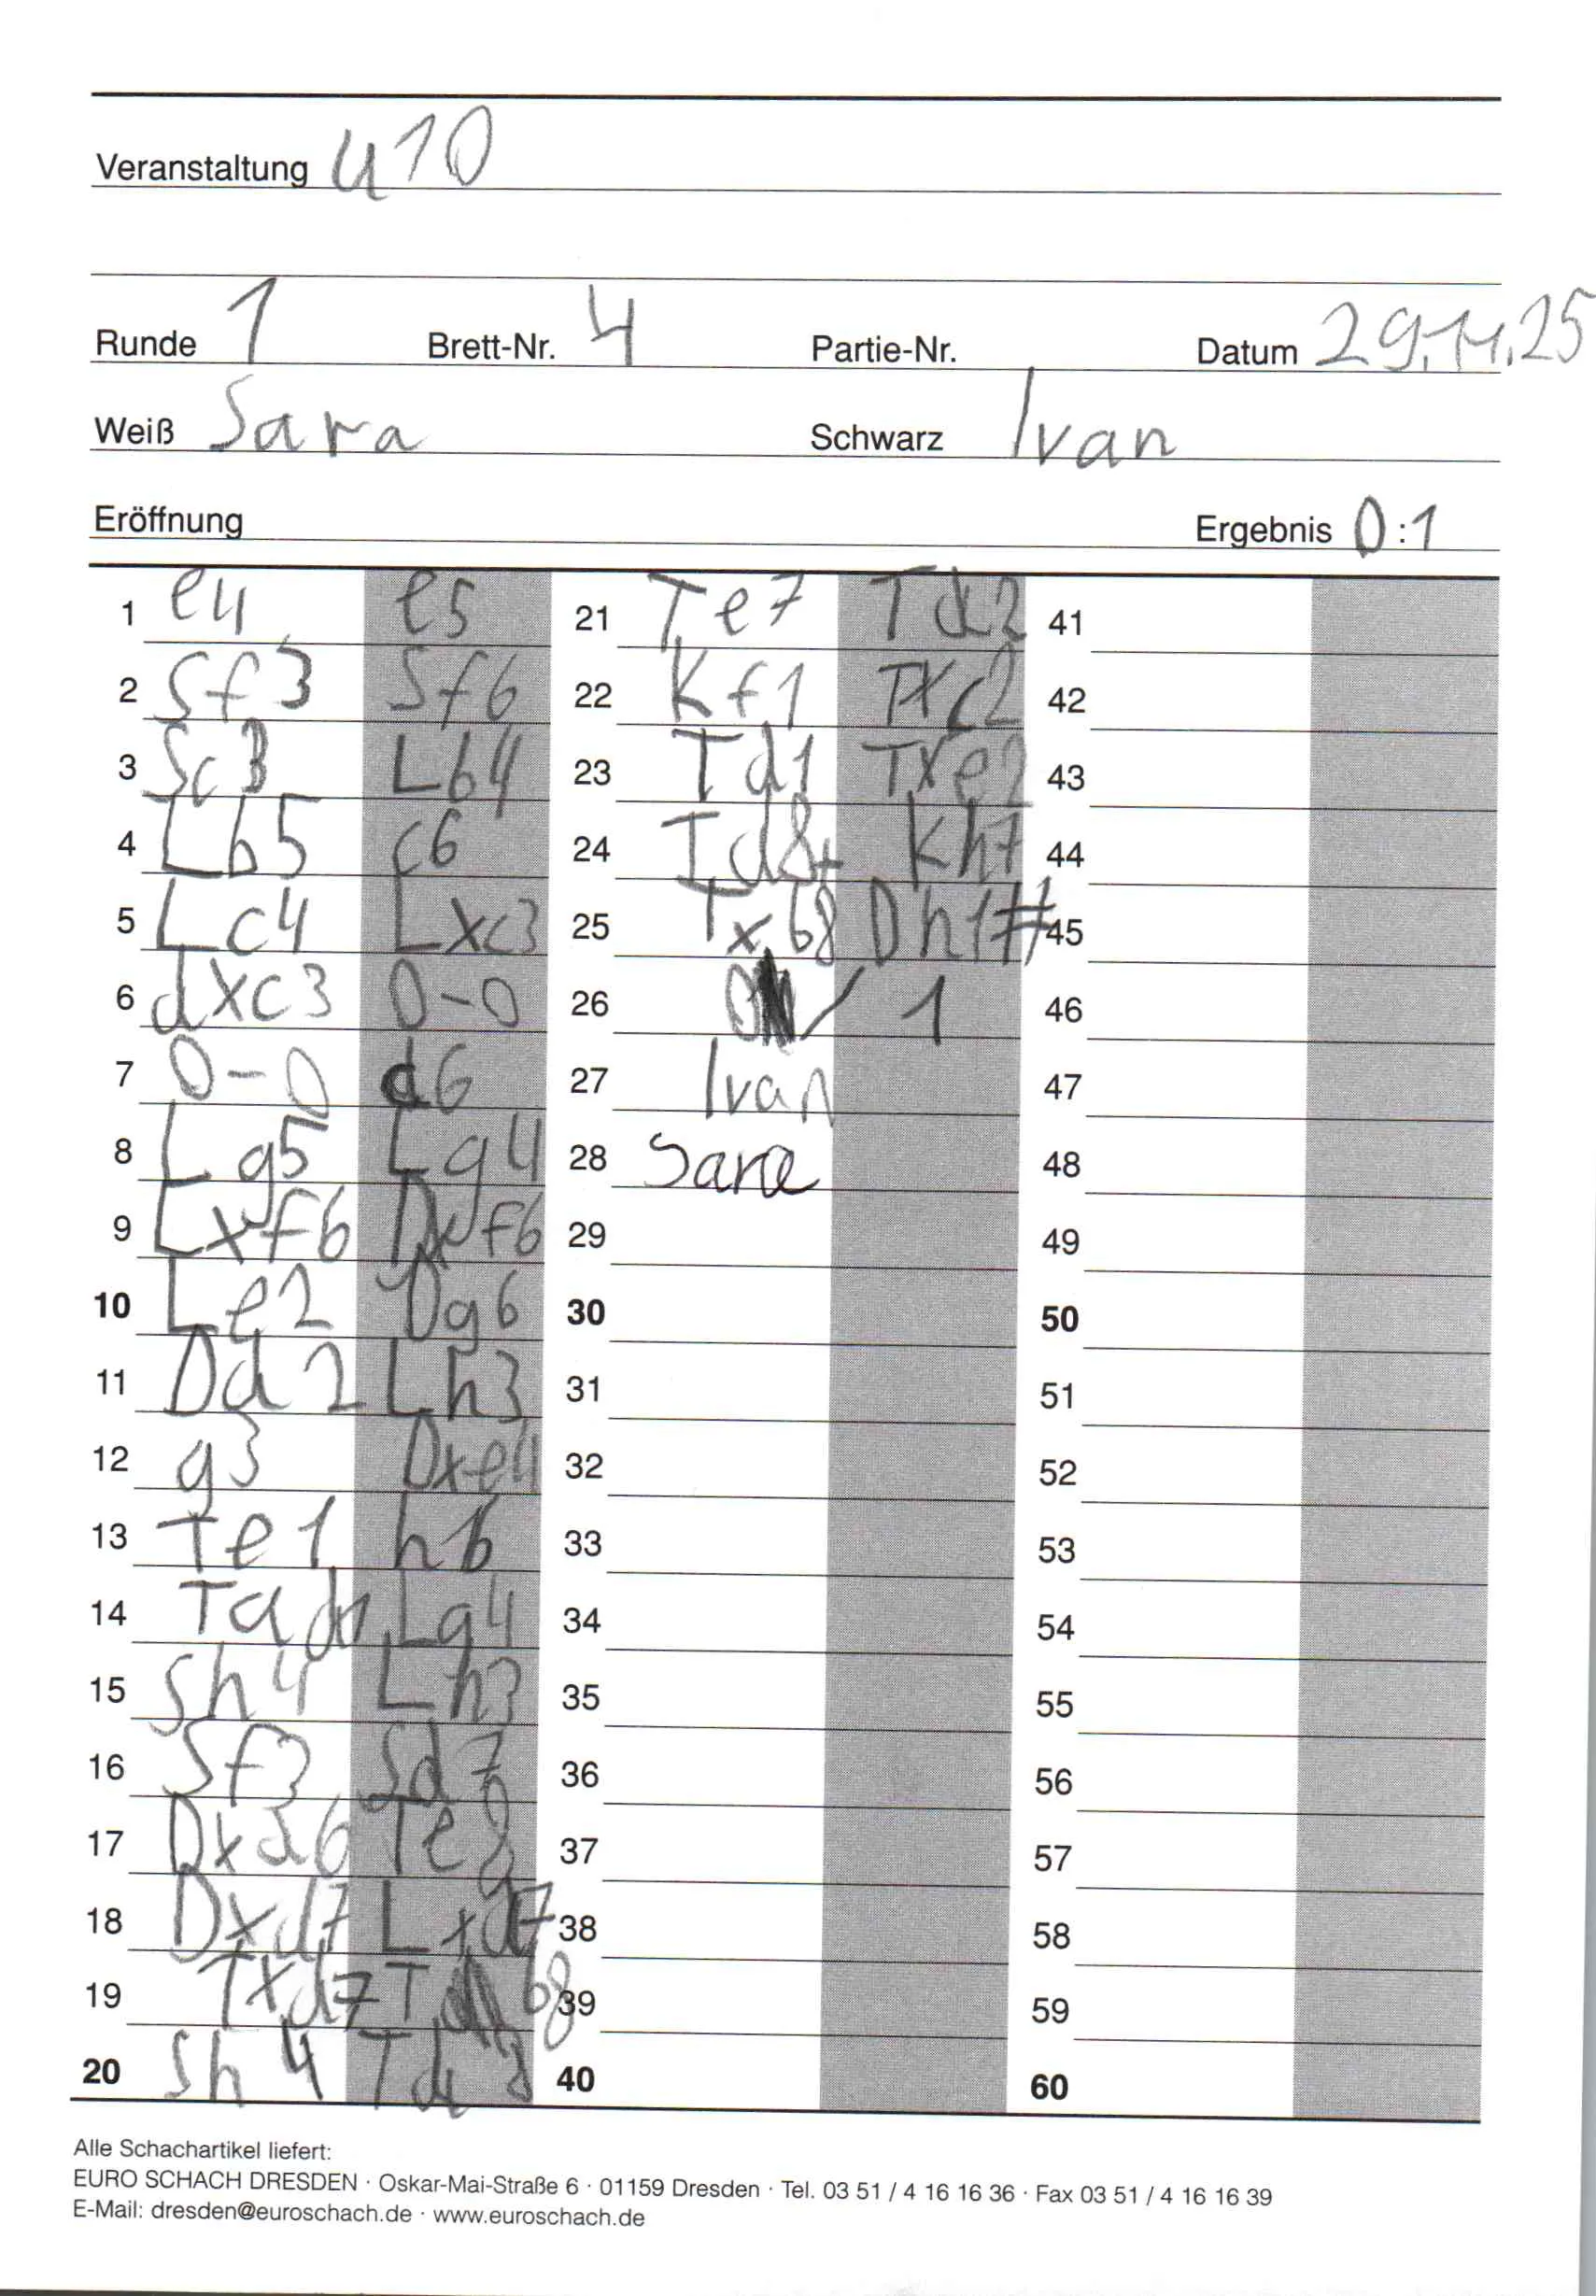 Veranstaltung U10
Runde 1 Brett-Nr. 4 Partie-Nr. Datum 29.11.25
Weiß Sara Schwarz Ivan
Eröffnung Ergebnis 0:1
1 e4 e5 21 Te7 Td2 41
2 Sf3 Sf6 22 Kf1 Txc2 42
3 Sc3 Lb4 23 Td1 Txe2 43
4 Lb5 c6 24 Td8+ Kh7 44
5 Lc4 Lxc3 25 Txb8 Dh1# 45
6 dxc3 0-0 26 0/1 46
7 0-0 d6 27 Ivan 47
8 Lg5 Lg4 28 Sara 48
9 Lxf6 Dxf6 29 49
10 Le2 Dg6 30 50
11 Dd2 Lh3 31 51
12 g3 Dxe4 32 52
13 Te1 h6 33 53
14 Tad1 Lg4 34 54
15 Sh4 Lh3 35 55
16 Sf3 Sd7 36 56
17 Dxd6 Te8 37 57
18 Dxd7 Lxd7 38 58
19 Txd7 Tb8 39 59
20 Sh4 Td8 40 60
Alle Schachartikel liefert:
EURO SCHACH DRESDEN · Oskar-Mai-Straße 6 · 01159 Dresden · Tel. 03 51 / 4 16 16 36 · Fax 03 51 / 4 16 16 39
E-Mail: dresden@euroschach.de · www.euroschach.de